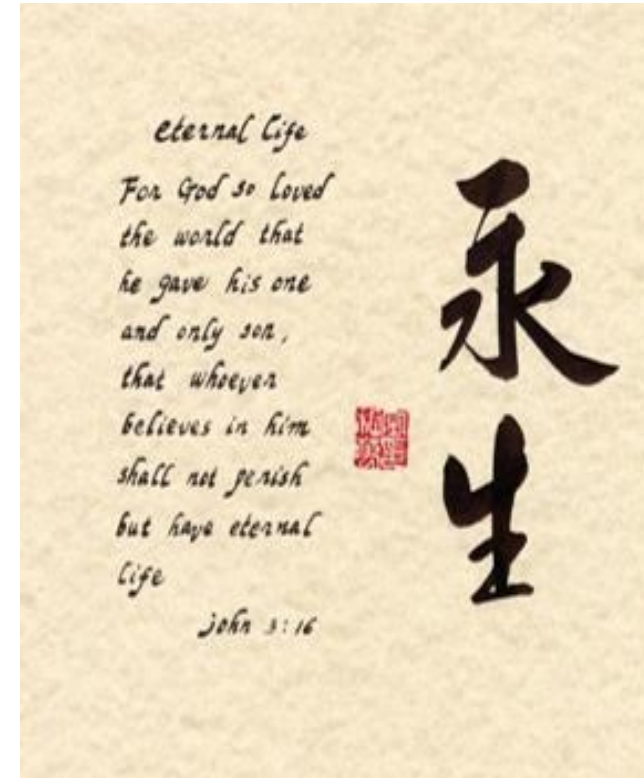 eternal life
For God so loved
the world that
he gave his one
and only son,
that whoever
believes in him
shall not perish
but have eternal
life
john 3:16
永生